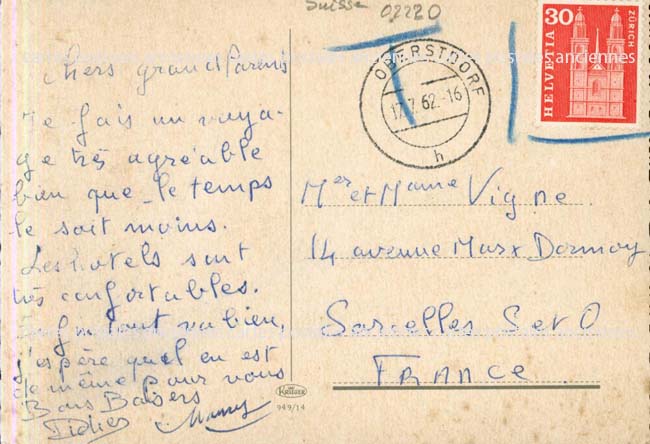 Suisse 02220
chers grand Parents
Je fais un voya-
ge très agréable
bien que le temps
le soit moins.
Les hotels sont
très confortables.
tout va bien,
j'espère quel en est
de même pour vous
Bons Baisers
Didier
OBERSTDORF
17.7.62.-16
h
30
HELVETIA
ZÜRICH
anciennes
Mer et Mame Vigne.
14 avenue Marx Dormoy
Sarcelles S et O
FRANCE
KRÜGER
949/14